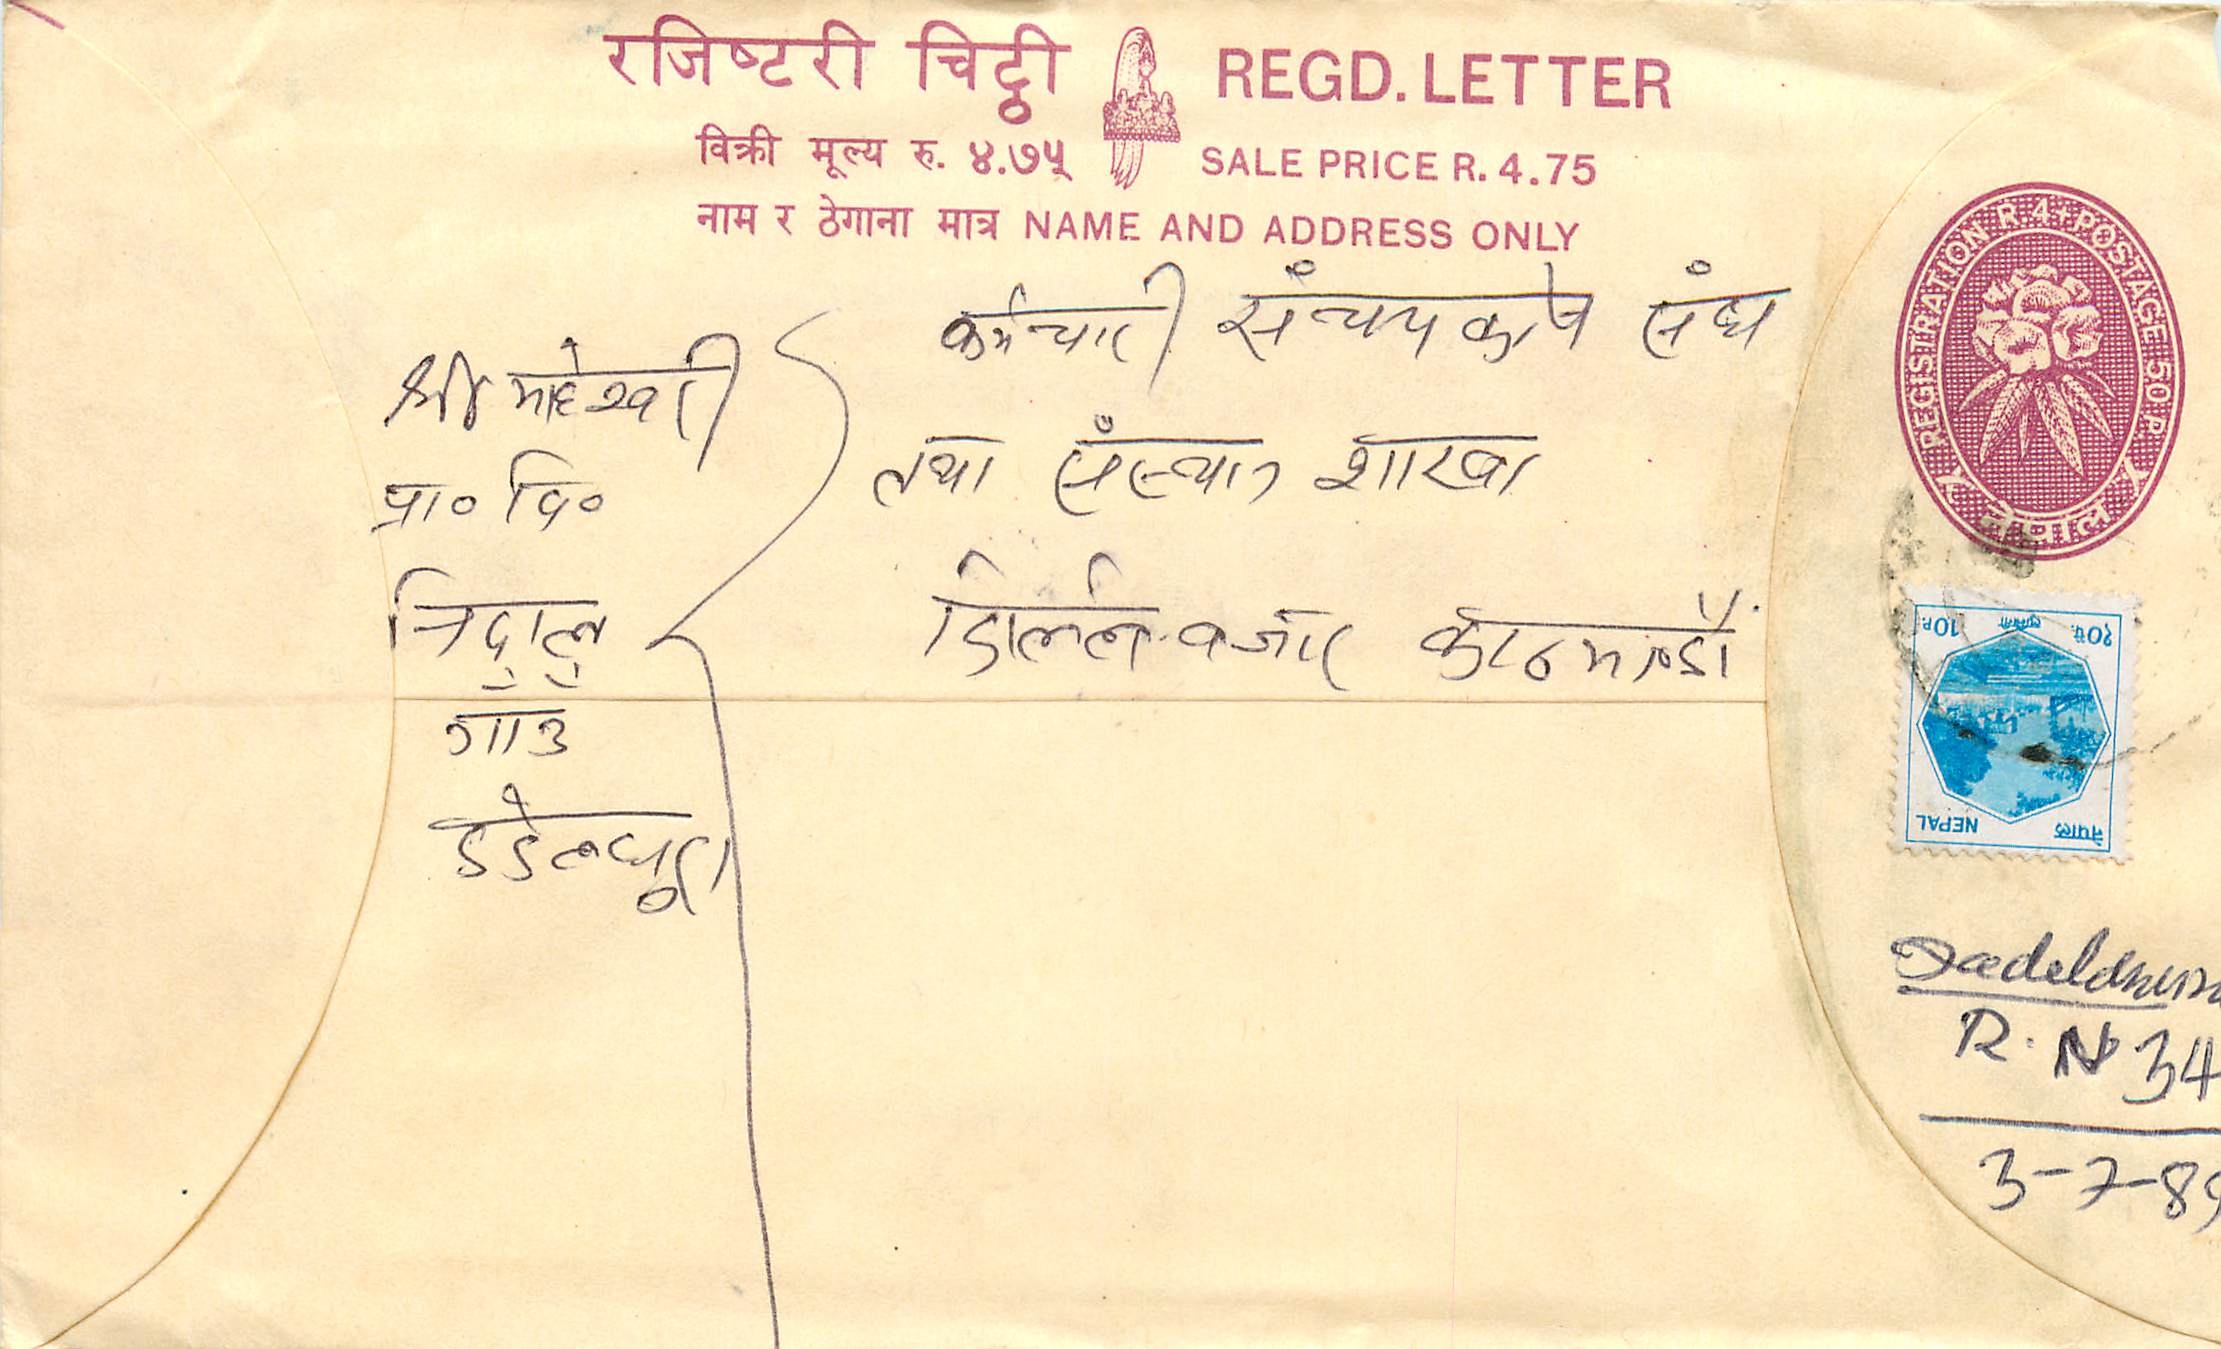 रजिष्टरी चिट्ठी REGD. LETTER
विक्री मूल्य रु. ४.७५ SALE PRICE R. 4.75
नाम र ठेगाना मात्र NAME AND ADDRESS ONLY
REGISTRATION R.4+POSTAGE 50 P.
नेपाल
कर्मचारी संचयकोष संघ
तथा संस्थान शाखा
डिल्ली बजार काठमाण्डौं
श्री माहेश्वरी
प्रा० वि०
गाउ
डडेलधुरा
१०पै. 10P
नेपाल NEPAL
Dadeldhura
R. N 34
3-7-89